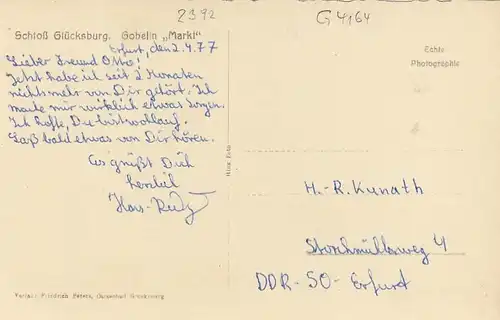 2392
G 4164
Schloß Glücksburg. Gobelin „Markt"
Erfurt, den 2.4.77
Lieber Freund Otto!
Jetzt habe ich seit 2 Monaten
nichts mehr von Dir gehört. Ich
mache mir wirklich etwas Sorgen.
Ich hoffe, Du bist wohlauf.
Laß bald etwas von Dir hören.
Es grüßt Dich
herzlich
Hans-Rudy
Echte
Photographie
H.-R. Kunath
Storchmühlenweg 4
DDR-50-Erfurt
Verlag: Friedrich Peters, Ostseebad Glücksburg